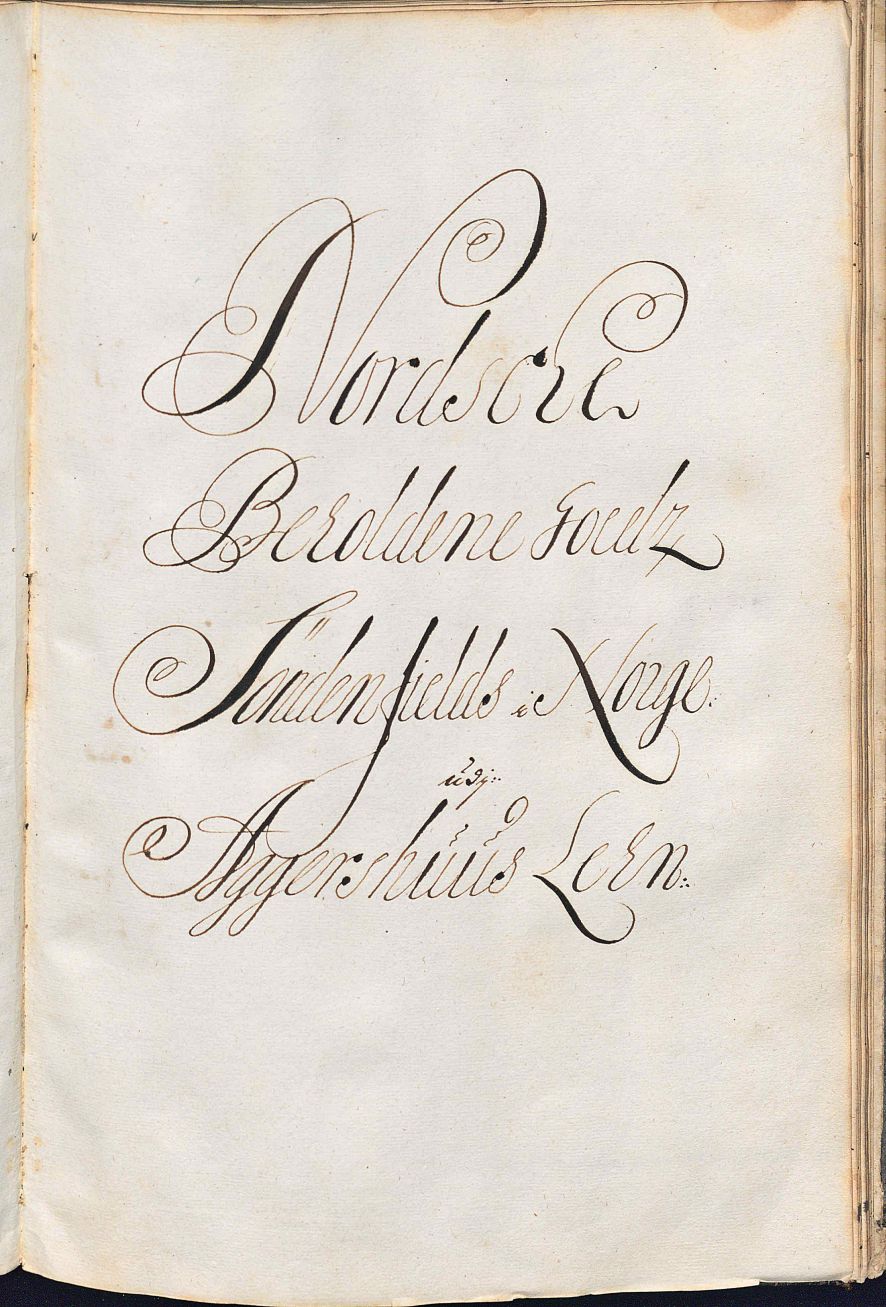 Nordsche
Beholdene Goedtz
Söndenfields i Norge.
udj:
Aggershuus Lehn: